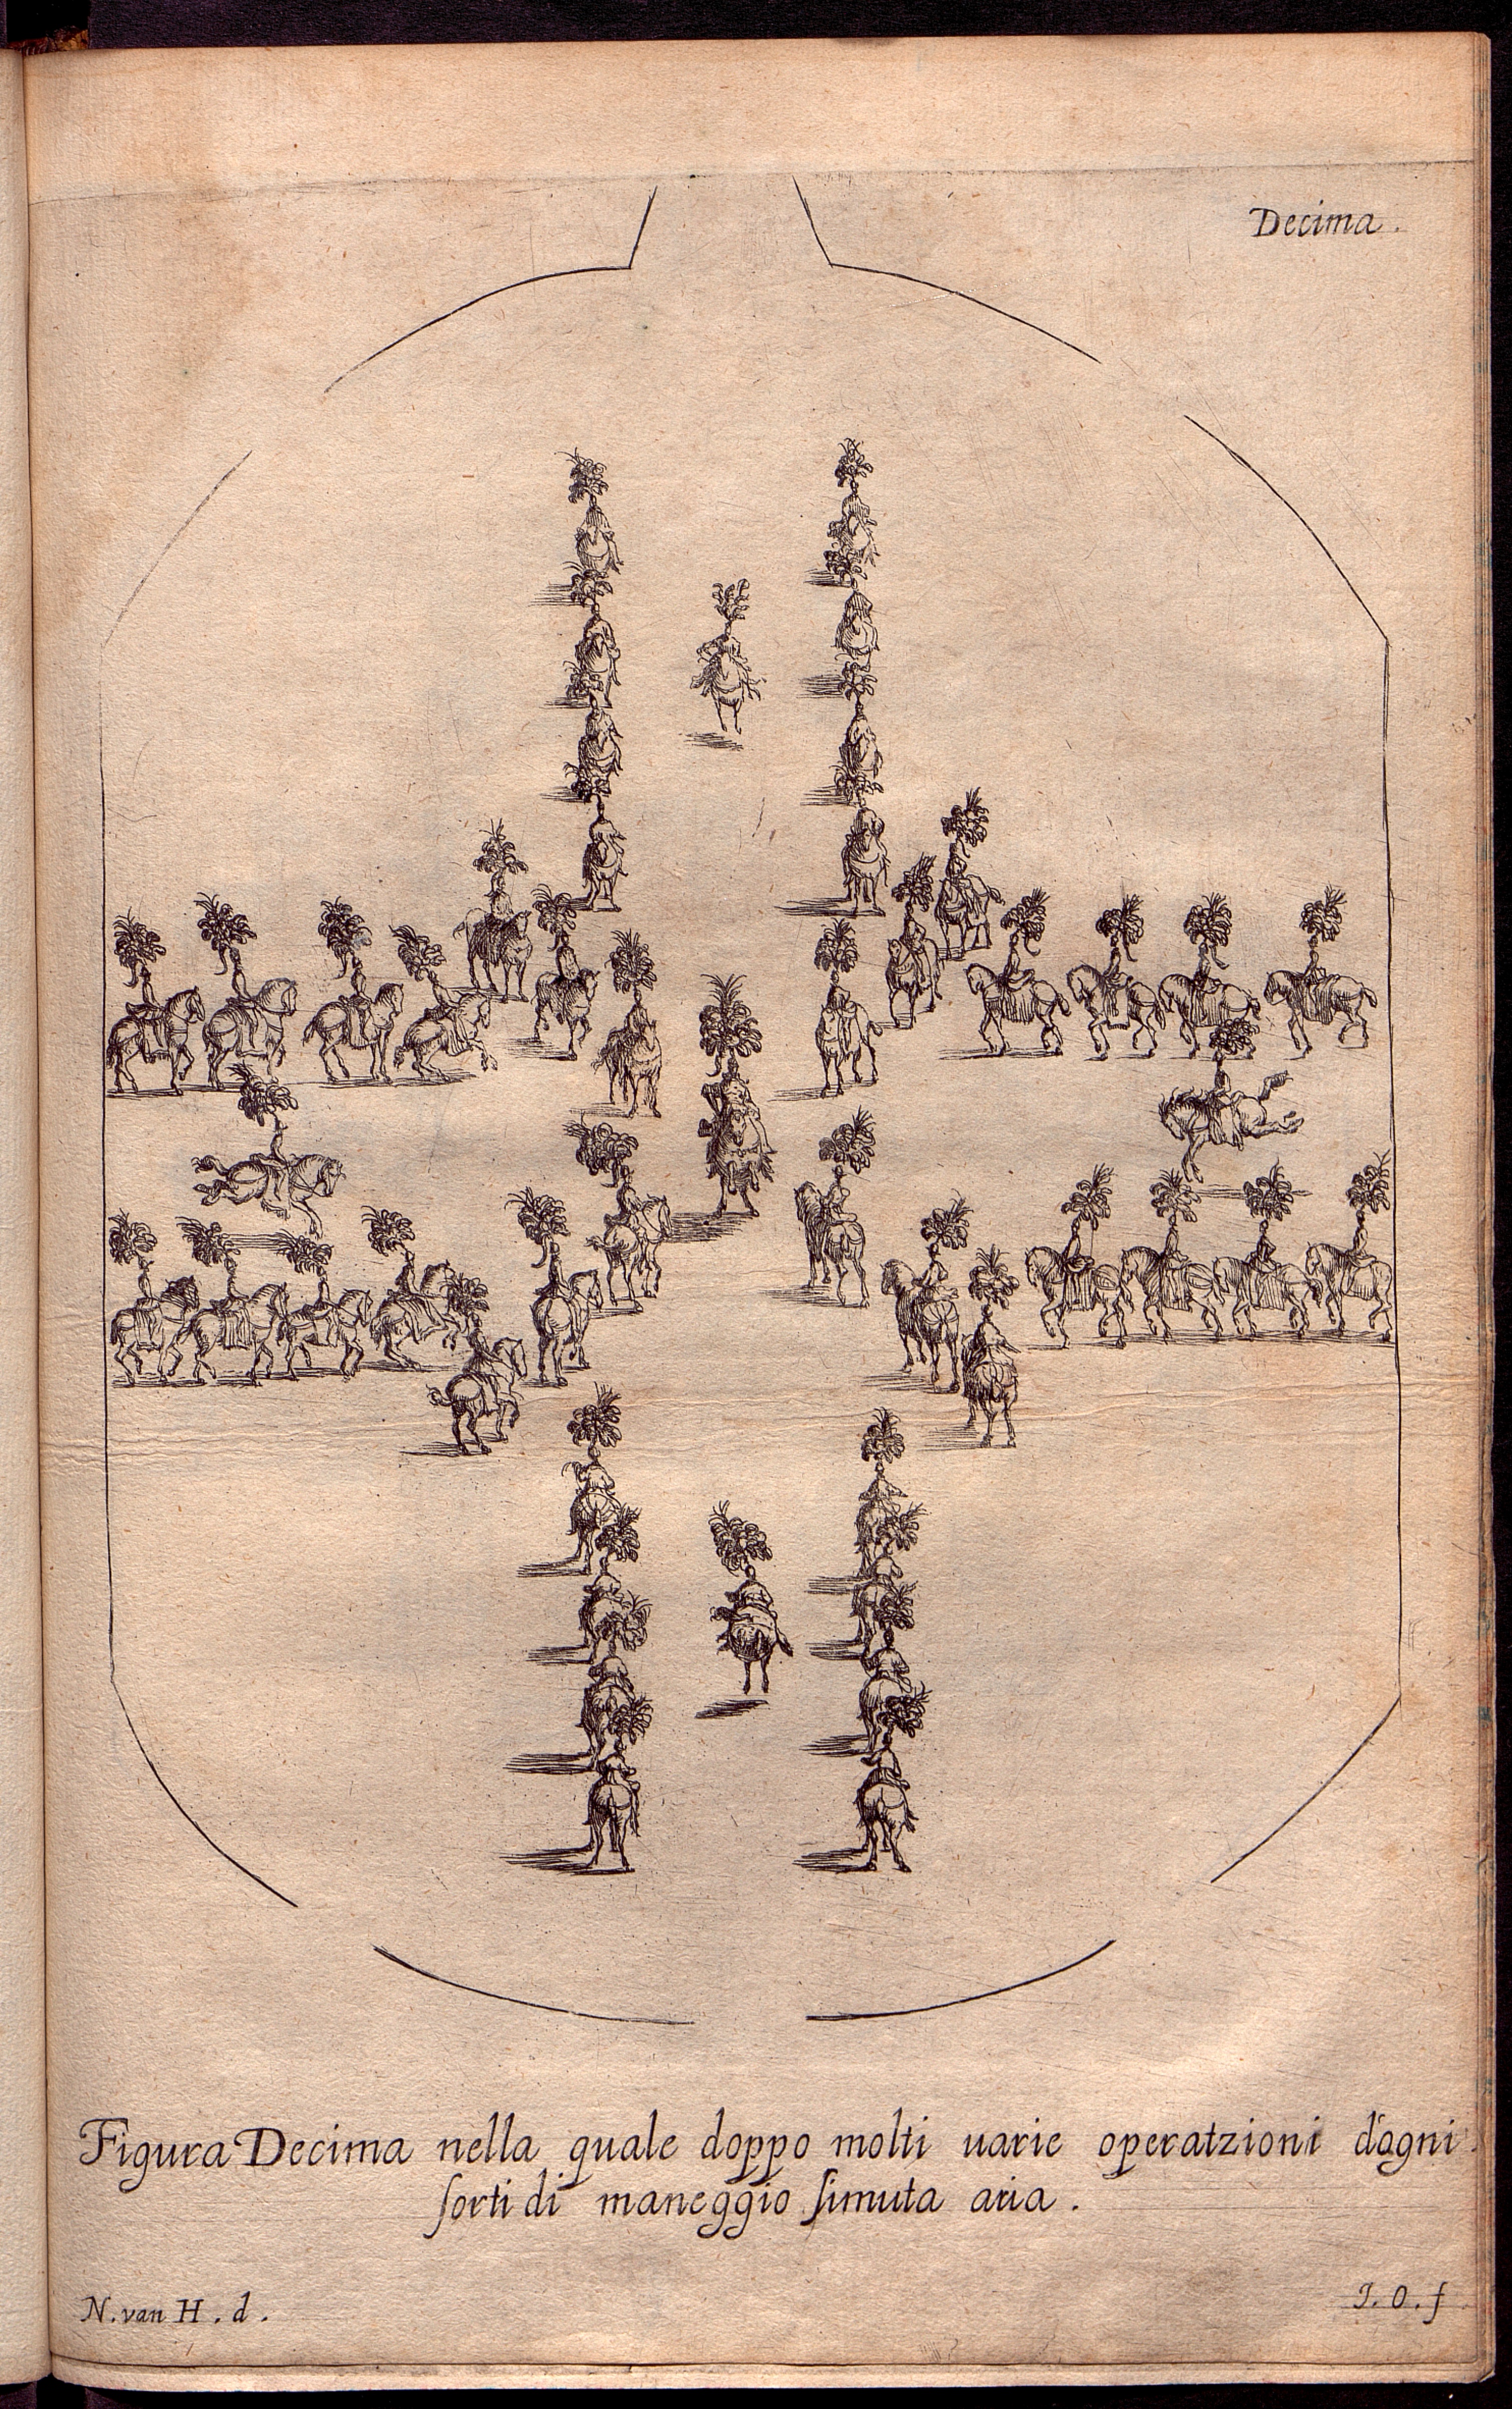 Decima.
Figura Decima nella quale doppo molti uarie operatzioni d'ogni
sorti di maneggio si muta aria.
N. van H. d.
J. O. f